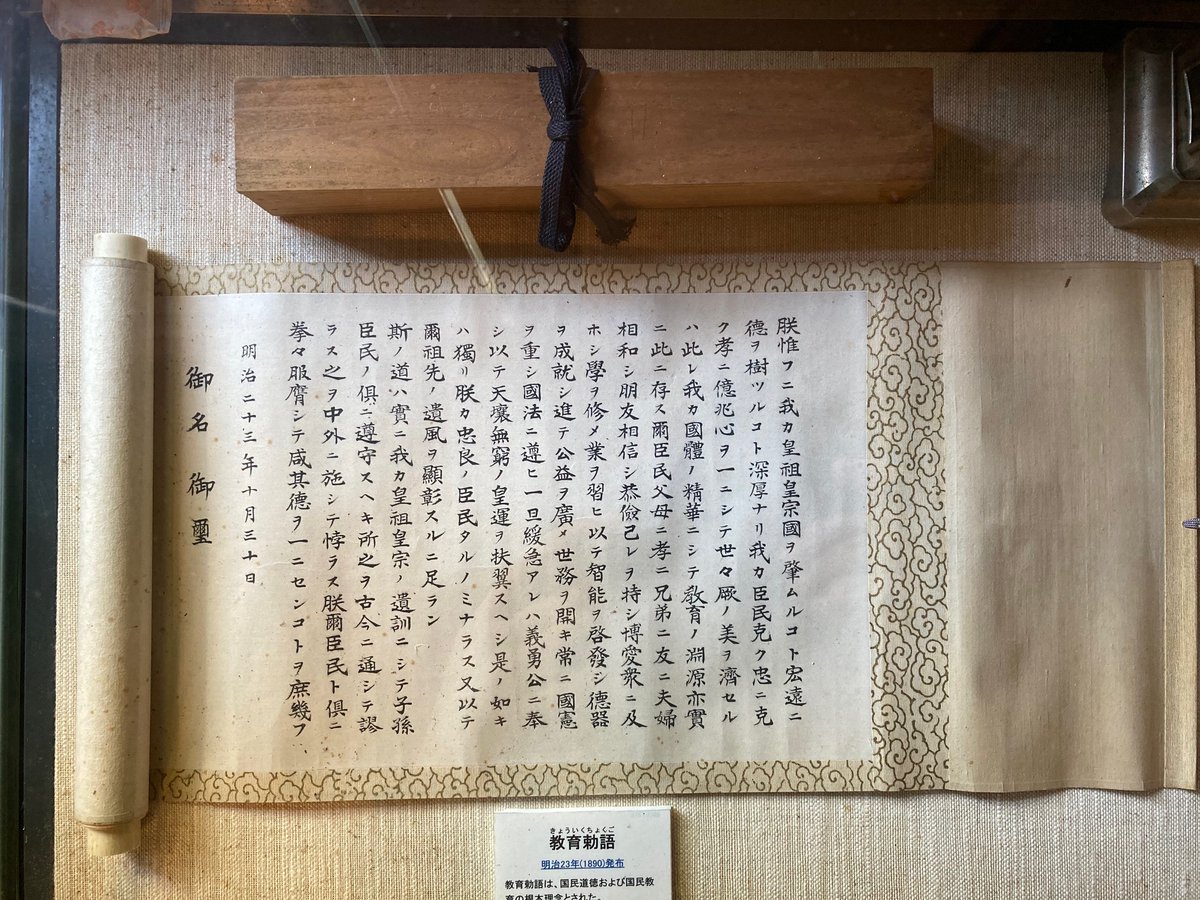 朕惟フニ我カ皇祖皇宗國ヲ肇ムルコト宏遠ニ
德ヲ樹ツルコト深厚ナリ我カ臣民克ク忠ニ克
ク孝ニ億兆心ヲ一ニシテ世々厥ノ美ヲ濟セル
ハ此レ我カ國體ノ精華ニシテ敎育ノ淵源亦實
ニ此ニ存ス爾臣民父母ニ孝ニ兄弟ニ友ニ夫婦
相和シ朋友相信シ恭儉己レヲ持シ博愛衆ニ及
ホシ學ヲ修メ業ヲ習ヒ以テ智能ヲ啓發シ德器
ヲ成就シ進テ公益ヲ廣メ世務ヲ開キ常ニ國憲
ヲ重シ國法ニ遵ヒ一旦緩急アレハ義勇公ニ奉
シ以テ天壤無窮ノ皇運ヲ扶翼スヘシ是ノ如キ
ハ獨リ朕カ忠良ノ臣民タルノミナラス又以テ
爾祖先ノ遺風ヲ顯彰スルニ足ラン
斯ノ道ハ實ニ我カ皇祖皇宗ノ遺訓ニシテ子孫
臣民ノ俱ニ遵守スヘキ所之ヲ古今ニ通シテ謬
ラス之ヲ中外ニ施シテ悖ラス朕爾臣民ト俱ニ
拳々服膺シテ咸其德ヲ一ニセンコトヲ庶幾フ
明治二十三年十月三十日
御名 御璽
きょういくちょくご
教育勅語
明治23年(1890)発布
教育勅語は、国民道徳および国民教
育の根本理念とされた。